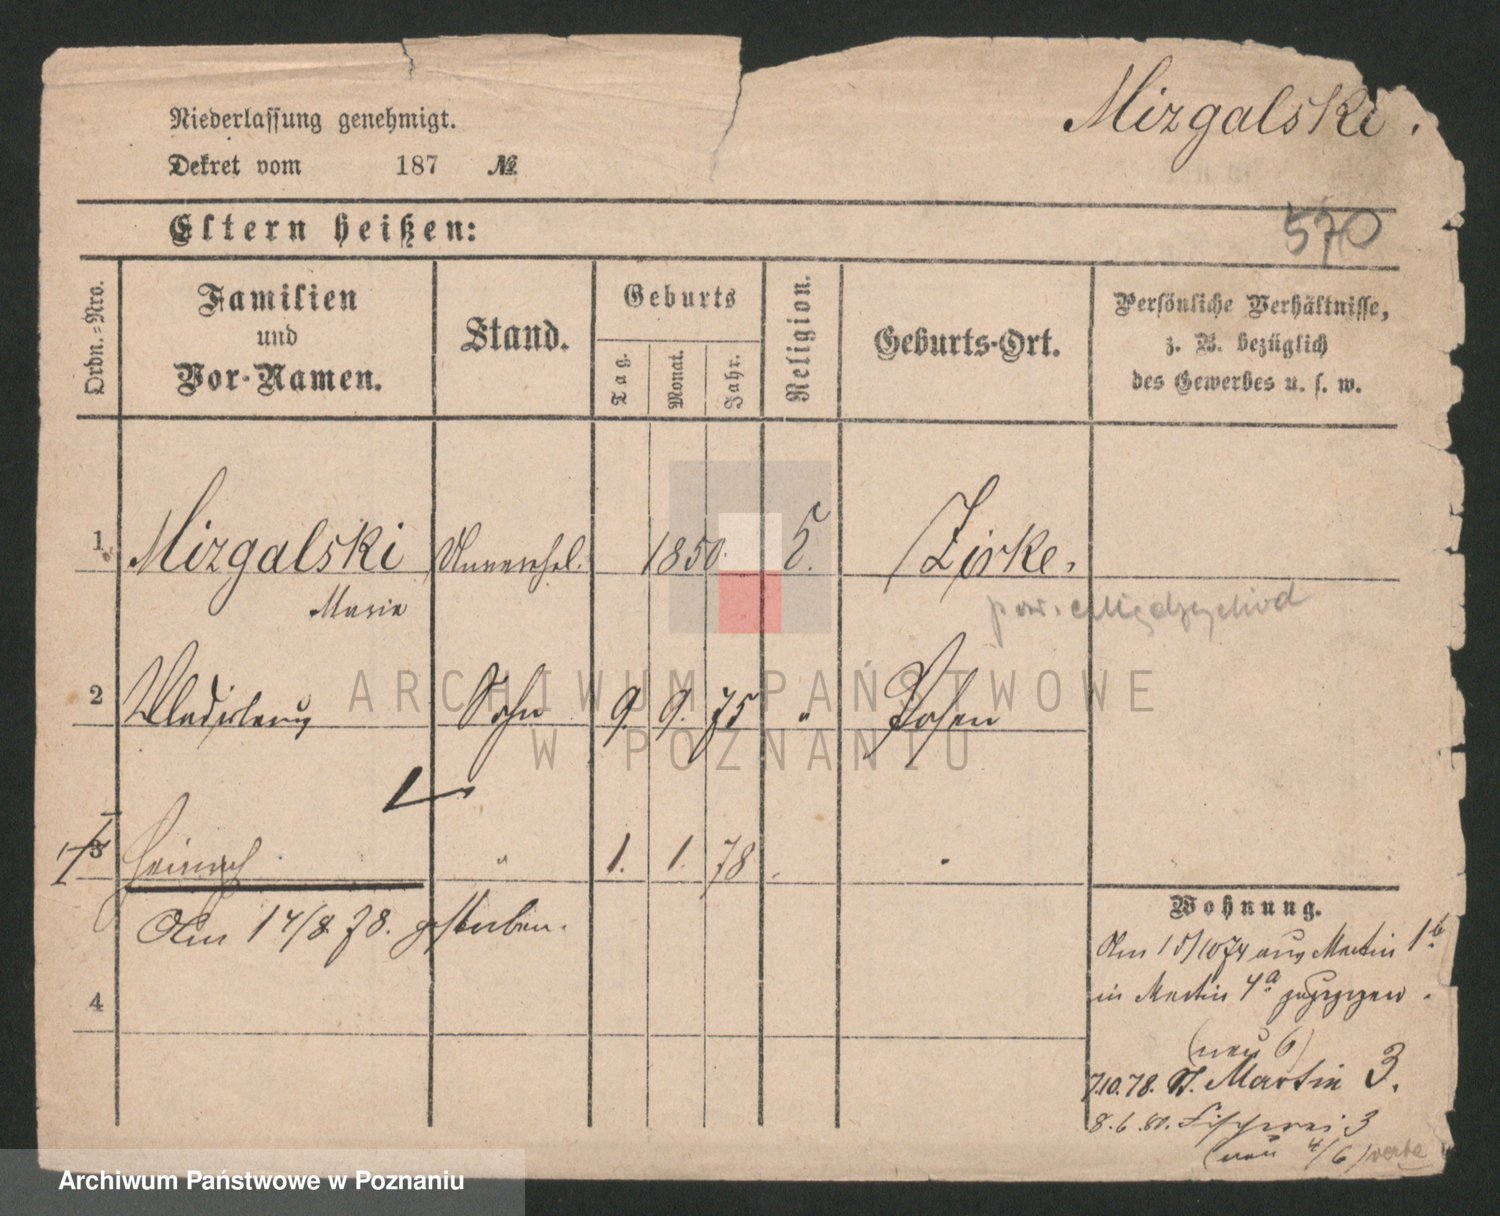 Mizgalski.
Niederlassung genehmigt.
Dekret vom 187 №
570
Eltern heißen:
Ordn.=Nro.
Familien
und
Vor-Namen.
Stand.
Geburts
Tag.
Monat.
Jahr.
Religion.
Geburts-Ort.
Persönliche Verhältnisse,
z. B. bezüglich
des Gewerbes u. s. w.
1 Mizgalski Unverehel. 1850. Zirke.
Marie
pow.
2 Wladislaus Sohn 9. 9. 75 " Posen
3 Heinrich " 1. 1. 78
Am 14/8. 78. gestorben.
4
Wohnung.
Am 15/10 74 aus Martin 1b.
in Martin 4a gezogen.
(neu 6)
7.10.78. St. Martin 3.
8.6.80. Fischerei 3
(neu 4/6)
ARCHIWUM PAŃSTWOWE
W POZNANIU
Archiwum Państwowe w Poznaniu